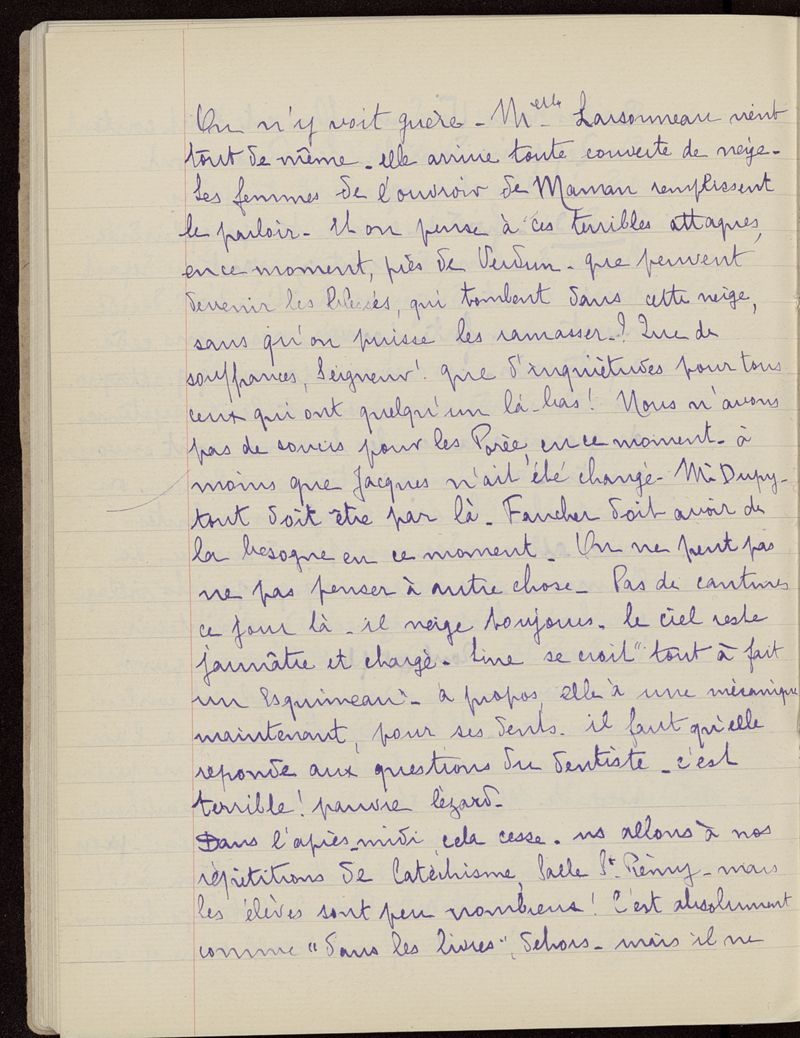 On n'y voit guère - Melle Larsonneau vient
tout de même - elle arrive toute couverte de neige -
les femmes de l'ouvroir de Maman remplissent
le parloir - Et on pense à ces terribles attaques,
en ce moment, près de Verdun - que peuvent
devenir les blessés, qui tombent dans cette neige,
sans qu'on puisse les ramasser -? Que de
souffrances, Seigneur! que d'inquiétudes pour tous
ceux qui ont quelqu'un là-bas! Nous n'avons
pas de soucis pour les Porée, en ce moment - à
moins que Jacques n'ait été changé - Mr Dupy-
tout doit être par là - Faucher doit avoir de
la besogne en ce moment - On ne peut pas
ne pas penser à autre chose - Pas de cantines
ce jour là - il neige toujours - le ciel reste
jaunâtre et chargé - Line se croit "tout à fait
un Esquimeau" - à propos, elle à une mécanique
maintenant, pour ses dents - il faut qu'elle
réponde aux questions du dentiste - c'est
terrible! pauvre lézard -
Dans l'après-midi, cela cesse - ns allons à nos
répétitions de Catéchisme, Salle St Rémy - mais
les élèves sont peu nombreux! C'est absolument
comme "dans les livres", dehors - mais il ne